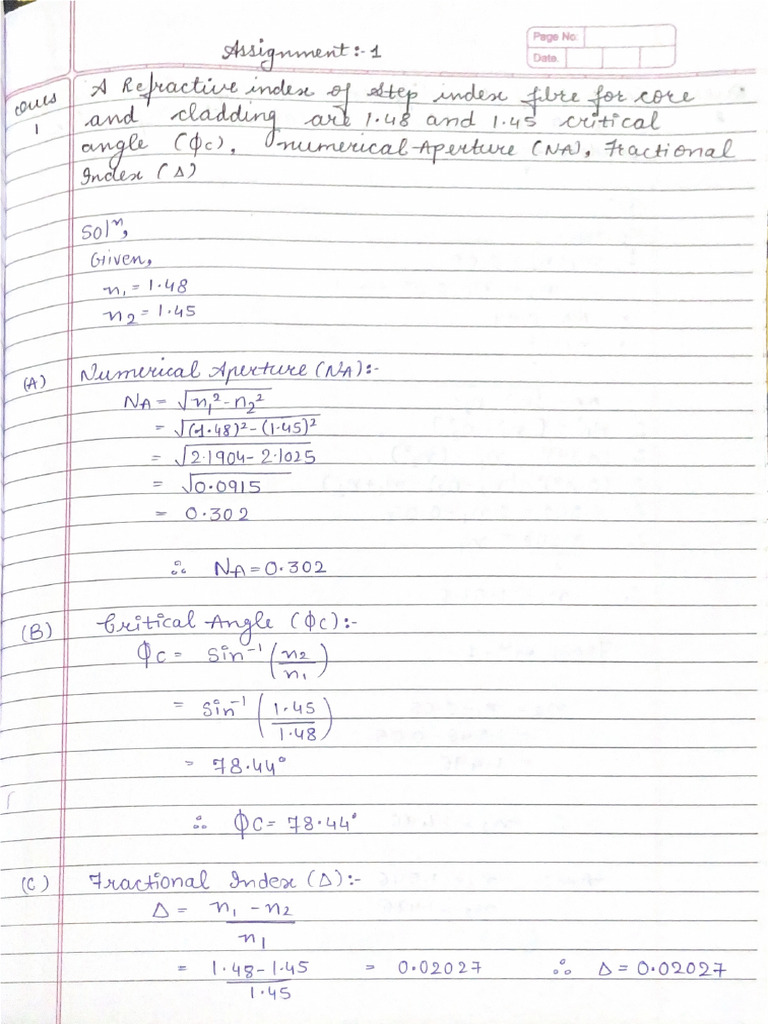 Assignment:- 1
Page No:
Date.
Ques 1
A Refractive index of step index fibre for core
and cladding are 1.48 and 1.45 critical
angle (ϕc), numerical Aperture (NA), Fractional
Index (Δ)
Solⁿ,
Given,
n₁ = 1.48
n₂ = 1.45
(A) Numerical Aperture (NA):-
NA = √n₁² - n₂²
= √(1.48)² - (1.45)²
= √2.1904 - 2.1025
= √0.0915
= 0.302
∴ NA = 0.302
(B) Critical Angle (ϕc):-
ϕc = sin⁻¹ (n₂/n₁)
= sin⁻¹ (1.45/1.48)
= 78.44°
∴ ϕc = 78.44°
(C) Fractional Index (Δ):-
Δ = n₁ - n₂ / n₁
= 1.48 - 1.45 / 1.45 = 0.02027 ∴ Δ = 0.02027